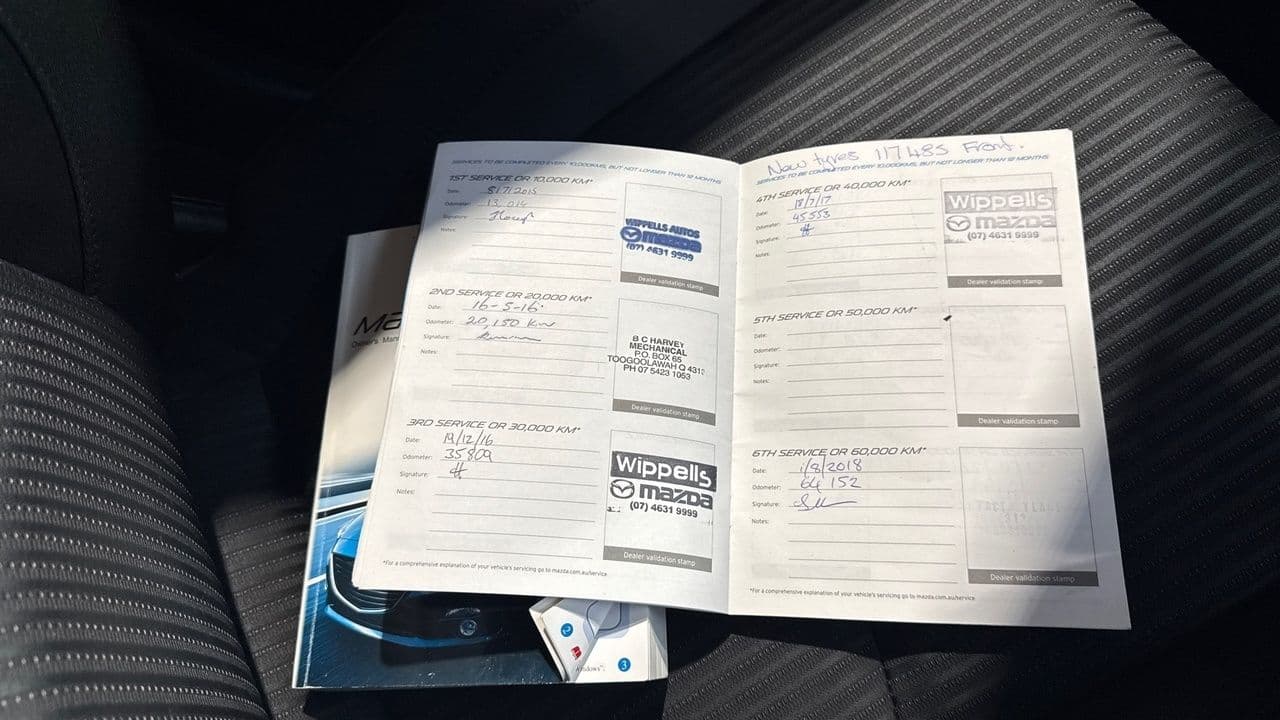 SERVICES TO BE COMPLETED EVERY 10,000KMS, BUT NOT LONGER THAN 12 MONTHS
1ST SERVICE OR 10,000 KM*
Date: 8/7/2015
Odometer: 13,014
Signature:
Notes:
WIPPELLS AUTOS
mazda
(07) 4631 9999
Dealer validation stamp
2ND SERVICE OR 20,000 KM*
Date: 16-5-16
Odometer: 20,150 Km
Signature:
Notes:
B C HARVEY
MECHANICAL
P.O. BOX 65
TOOGOOLAWAH Q 4313
PH 07 5423 1053
Dealer validation stamp
3RD SERVICE OR 30,000 KM*
Date: 19/12/16
Odometer: 35809
Signature:
Notes:
Wippells
mazda
(07) 4631 9999
Dealer validation stamp
*For a comprehensive explanation of your vehicle's servicing go to mazda.com.au/service
New tyres 117485 Front.
SERVICES TO BE COMPLETED EVERY 10,000KMS, BUT NOT LONGER THAN 12 MONTHS
4TH SERVICE OR 40,000 KM*
Date: 18/7/17
Odometer: 45553
Signature:
Notes:
Wippells
mazda
(07) 4631 9999
Dealer validation stamp
5TH SERVICE OR 50,000 KM*
Date:
Odometer:
Signature:
Notes:
Dealer validation stamp
6TH SERVICE OR 60,000 KM*
Date: 1/8/2018
Odometer: 64 152
Signature:
Notes:
Dealer validation stamp
*For a comprehensive explanation of your vehicle's servicing go to mazda.com.au/service
Owner's
2
3